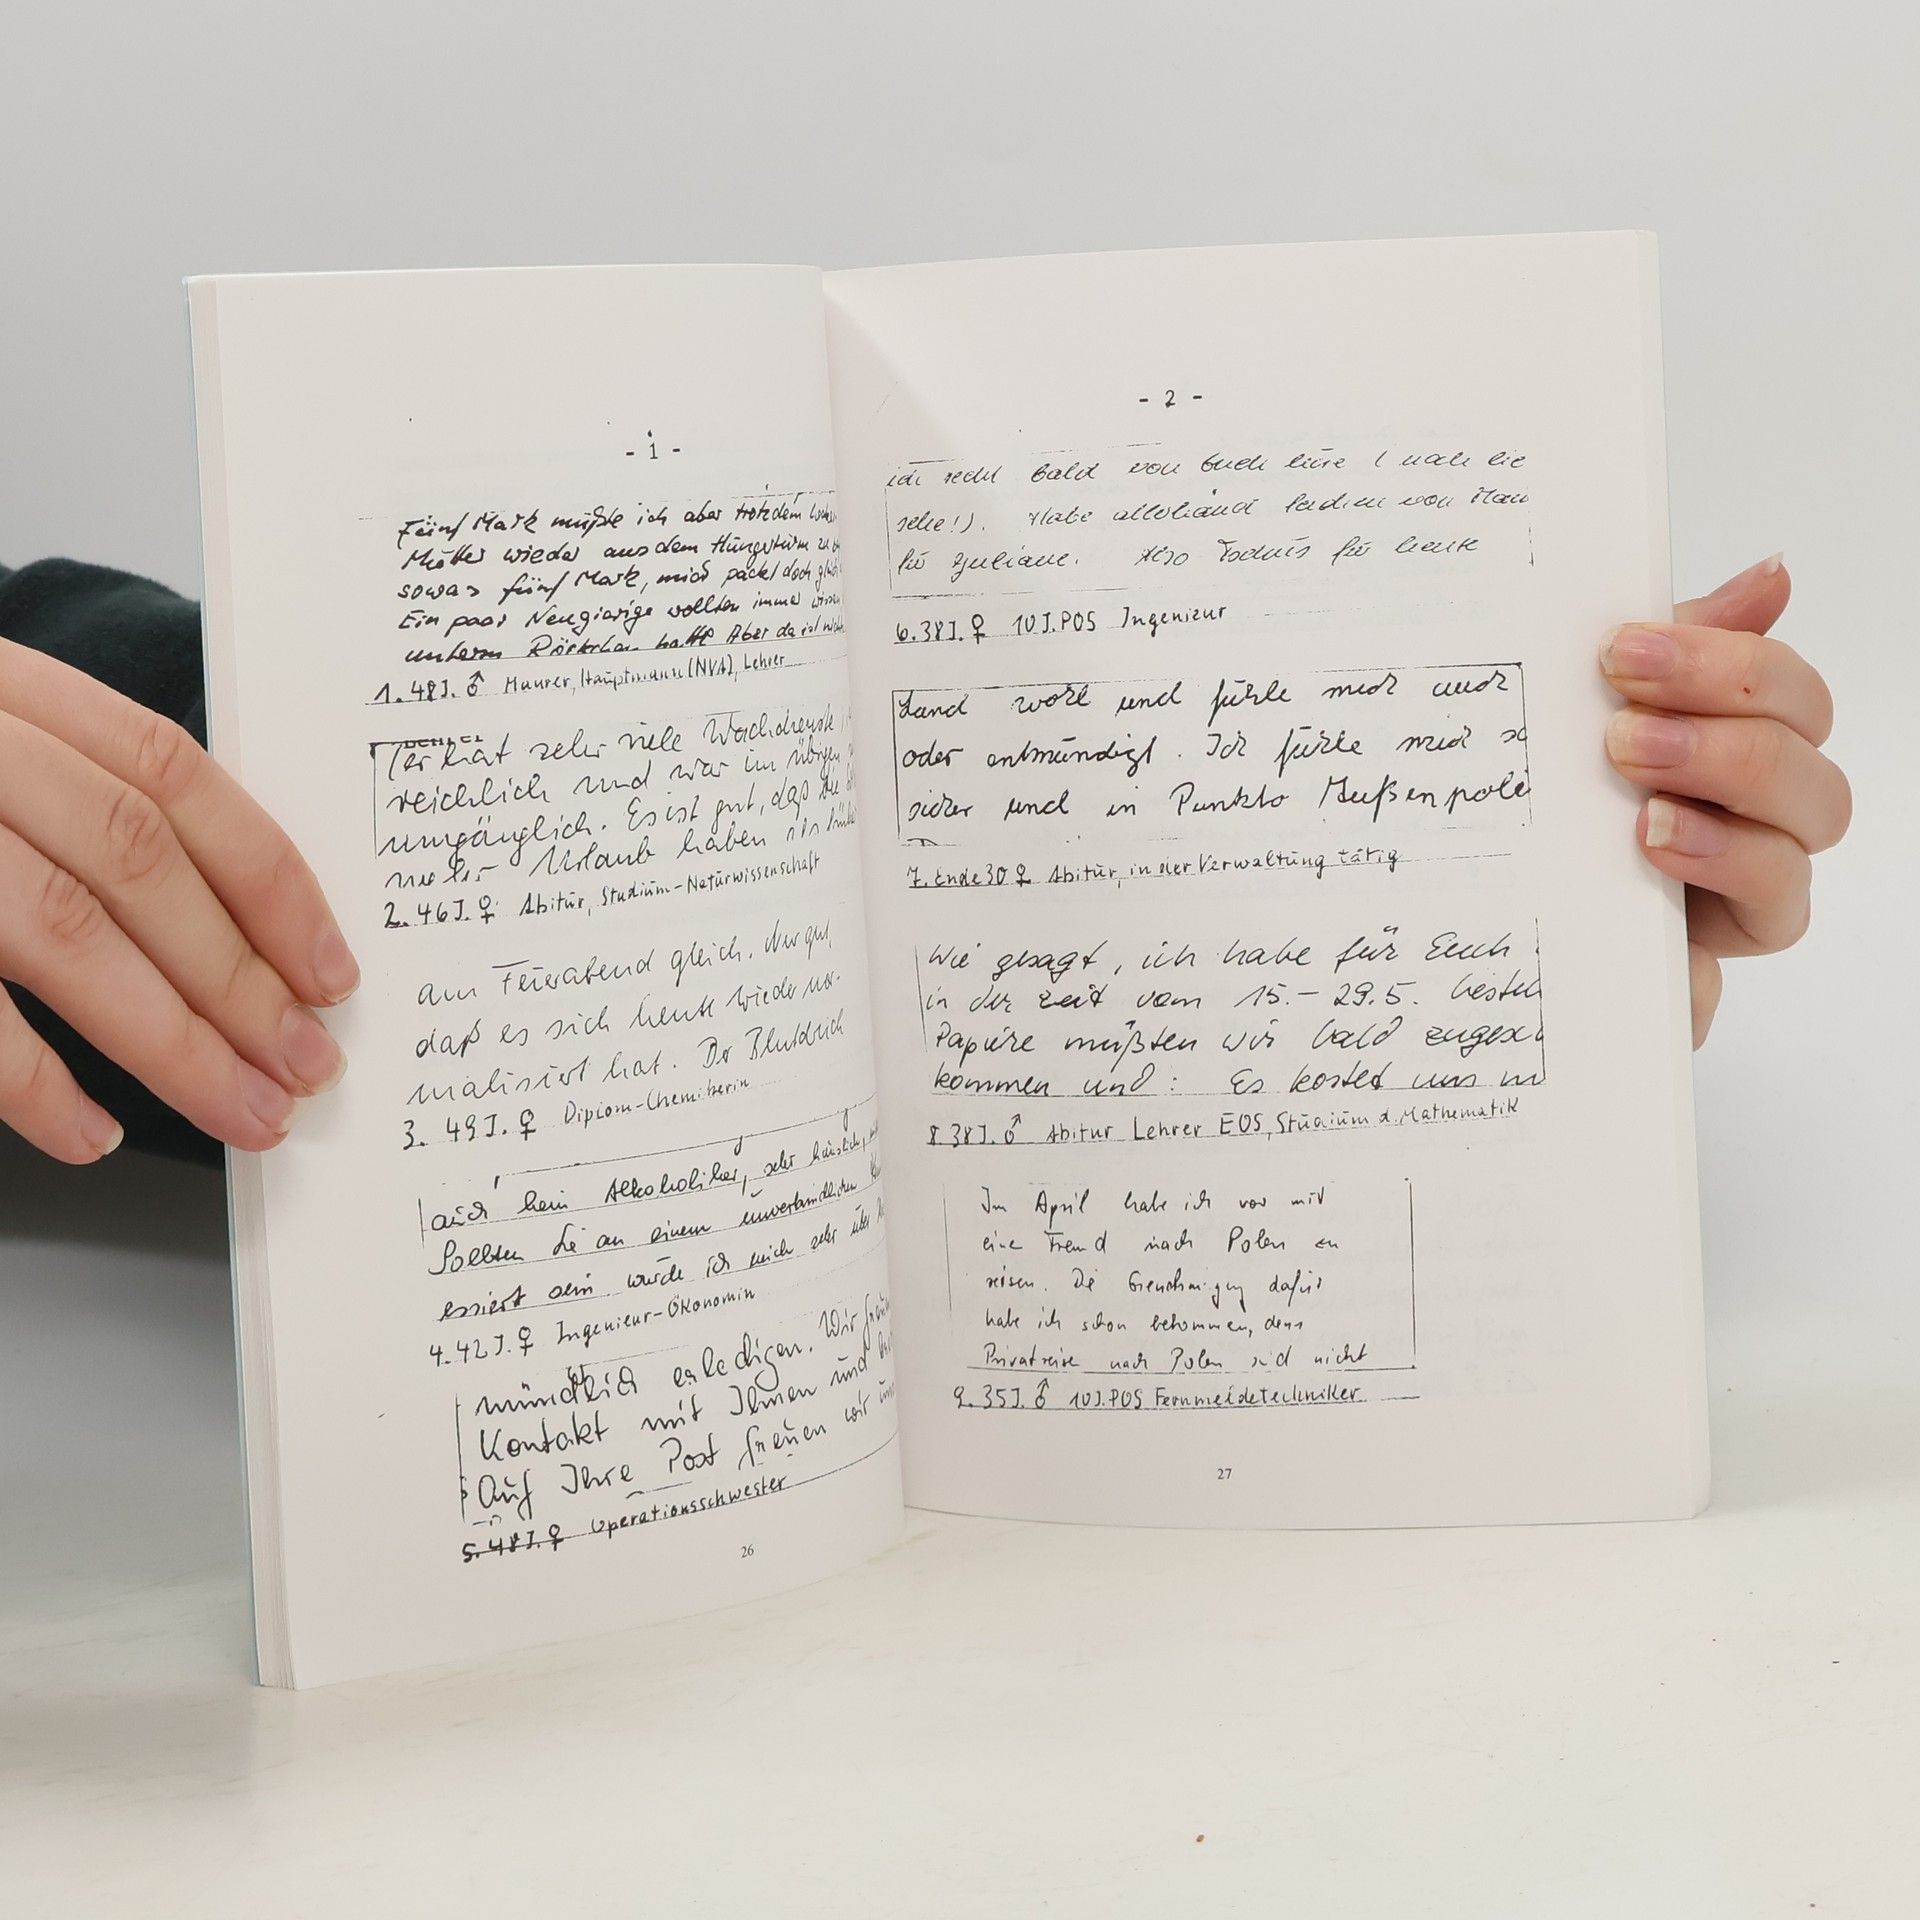 - 1 -
Fünf Mark mußte ich aber trotzdem
Mutter wieder aus dem Hungerturm zu
sowas fünf Mark, mich packt doch
Ein paar Neugierige wollten immer wissen
unterm Röckchen hatte Aber da ist
1. 48J. ♂ Maurer, Hauptmann (NVA), Lehrer
er hat sehr viele Wachdienste
reichlich und war im übrigen
umgänglich. Es ist gut, daß die
mehr Urlaub haben als
2. 46J. ♀ Abitur, Studium-Naturwissenschaft
am Feierabend gleich. Nur gut,
daß es sich heute wieder nor-
malisiert hat. Der Blutdruck
3. 49J. ♀ Diplom-Chemikerin
auch kein Alkoholiker, sehr häuslich,
Sollten Sie an einem unverbindlichen
essiert sein würde ich mich sehr über
4. 42J. ♀ Ingenieur-Ökonomin
mündlich erledigen. Wir
Kontakt mit Ihnen und
Auf Ihre Post freuen wir uns
5. 48J. ♀ Operationsschwester
26
- 2 -
ich recht bald von Euch höre ( nach
sehe!). Habe allerhand Sachen von
für Juliane. Also Tschüs für heute
6. 38J. ♀ 10J.POS Ingenieur
Land wohl und fühle mich auch
oder entmündigt. Ich fühle mich so
sicher und in Punkto Außenpoli
7. Ende 30 ♀ Abitur, in der Verwaltung tätig
Wie gesagt, ich habe für Euch
in der Zeit vom 15.- 29.5. bestell
Papiere müßten wir bald zugesa
kommen und: Es kostet uns
8. 38J. ♂ Abitur Lehrer EOS, Studium d. Mathematik
Im April habe ich vor mit
eine Freund nach Polen zu
reisen. Die Genehmigung dafür
habe ich schon bekommen, denn
Privatreise nach Polen sind nicht
9. 35J. ♂ 10J.POS Fernmeldetechniker
27